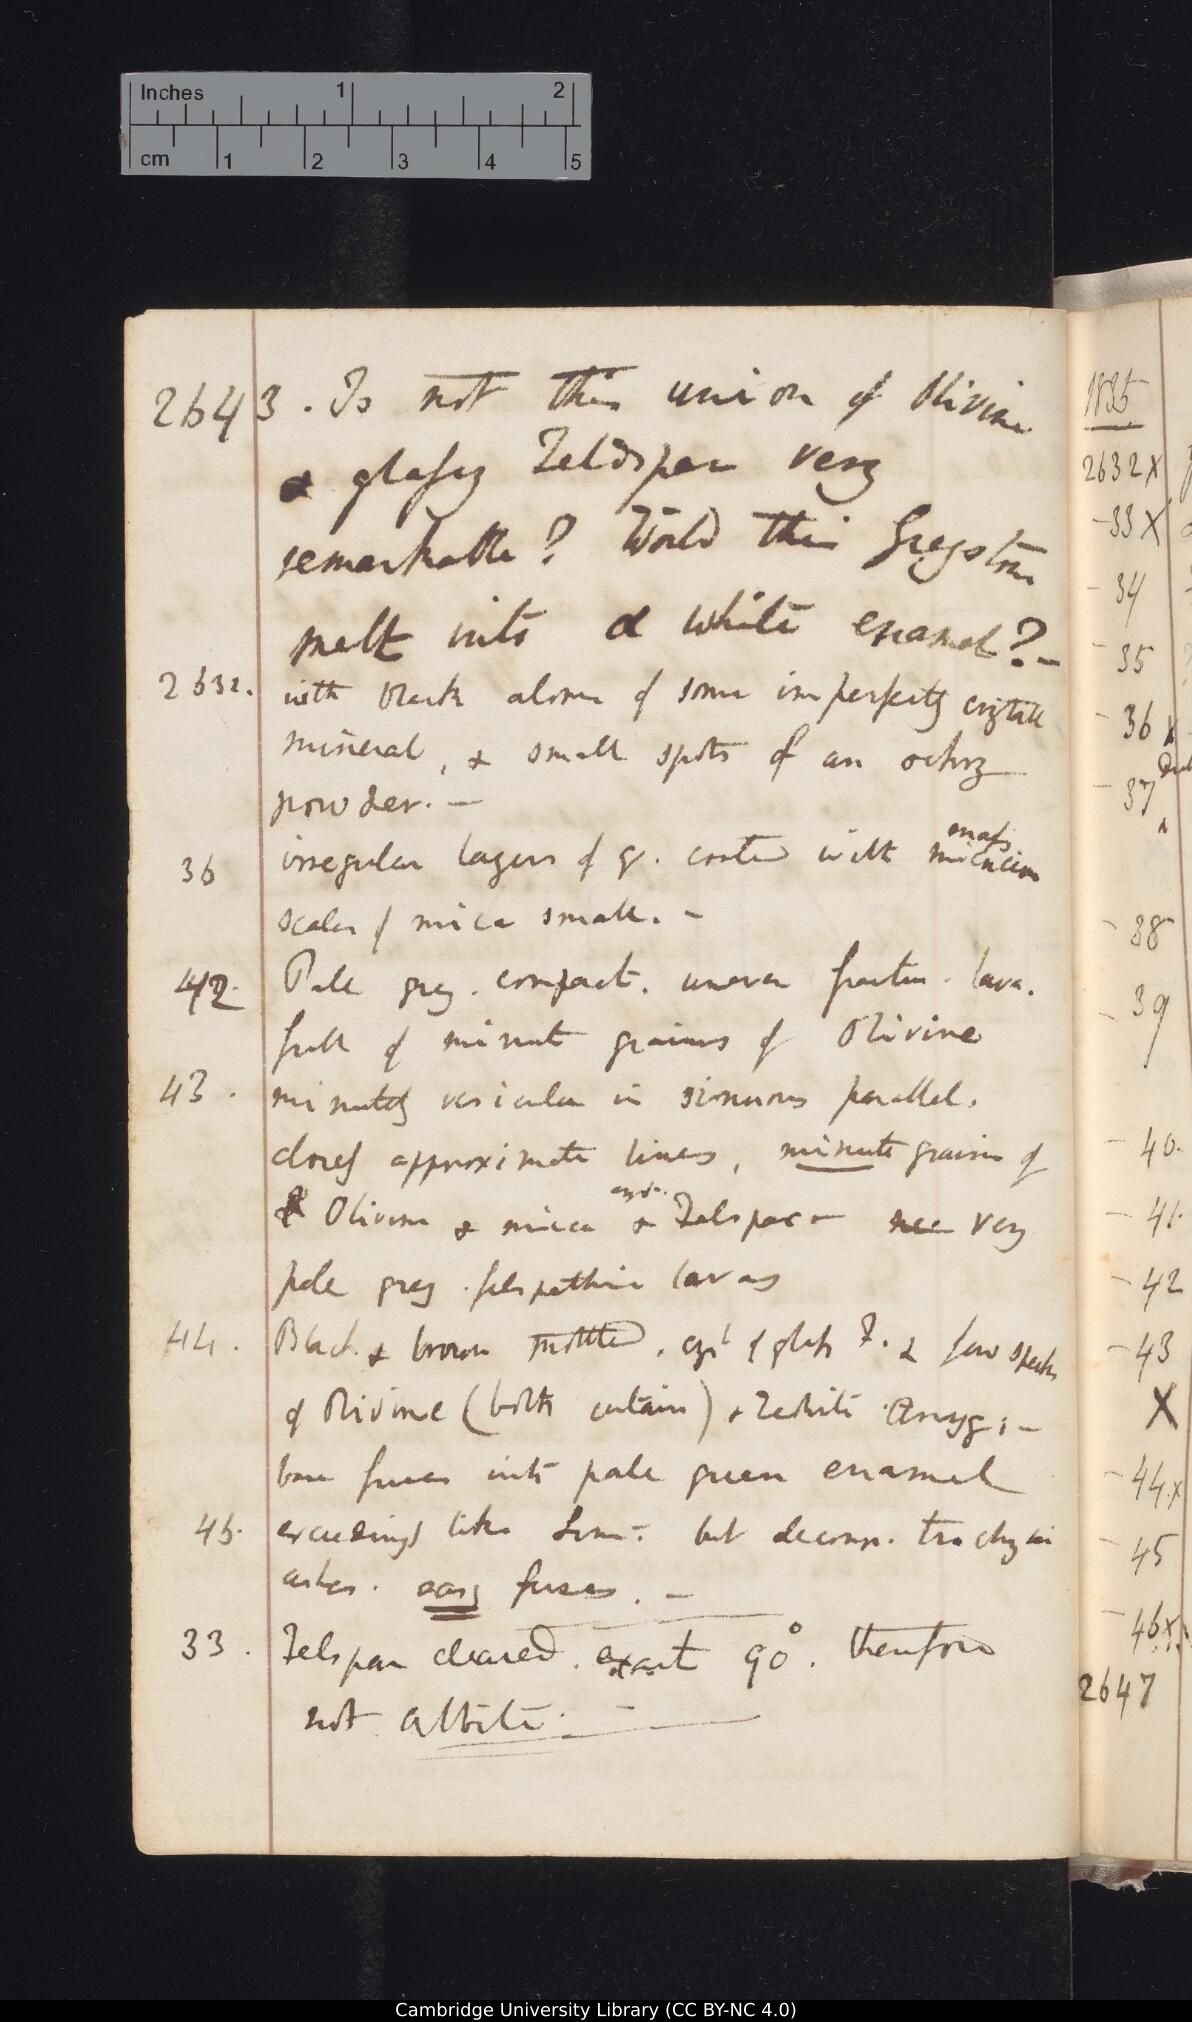 Inches 1 2
cm 1 2 3 4 5
2643. Is not this union of Olivine
& glassy Feldspar very
remarkable? Would this Greystone
melt into a white enamel? —
2632. with black alone of some imperfectly crystall
mineral, & small spots of an ochry
powder. —
36 irregular layers of gr. coated with
mass
scales of mica small. —
42. Pale grey. compact. uneven fractur. lava.
full of minute grains of Olivine
43. minutely vesicular in sinuous parallel.
closely approximate lines, minute grains of
Olivine & mica & Felspar very
pale grey felspathic lavas
44. Black & brown mottled. cryst of glass F. & few specks
of Olivine (both certain) & Zeolite Amyg; —
base fuses into pale green enamel
45. exceedingly like but decomp. trachytic
ashes. easy fuses. —
33. Felspar cleaved. exact 90°. therefore
not albite. —
1835
2632 X
- 33 X
- 34
- 35
- 36 x
- 37
- 38
- 39
- 40.
- 41.
- 42
- 43
X
- 44. x
- 45
- 46 x
2647
Cambridge University Library (CC BY-NC 4.0)